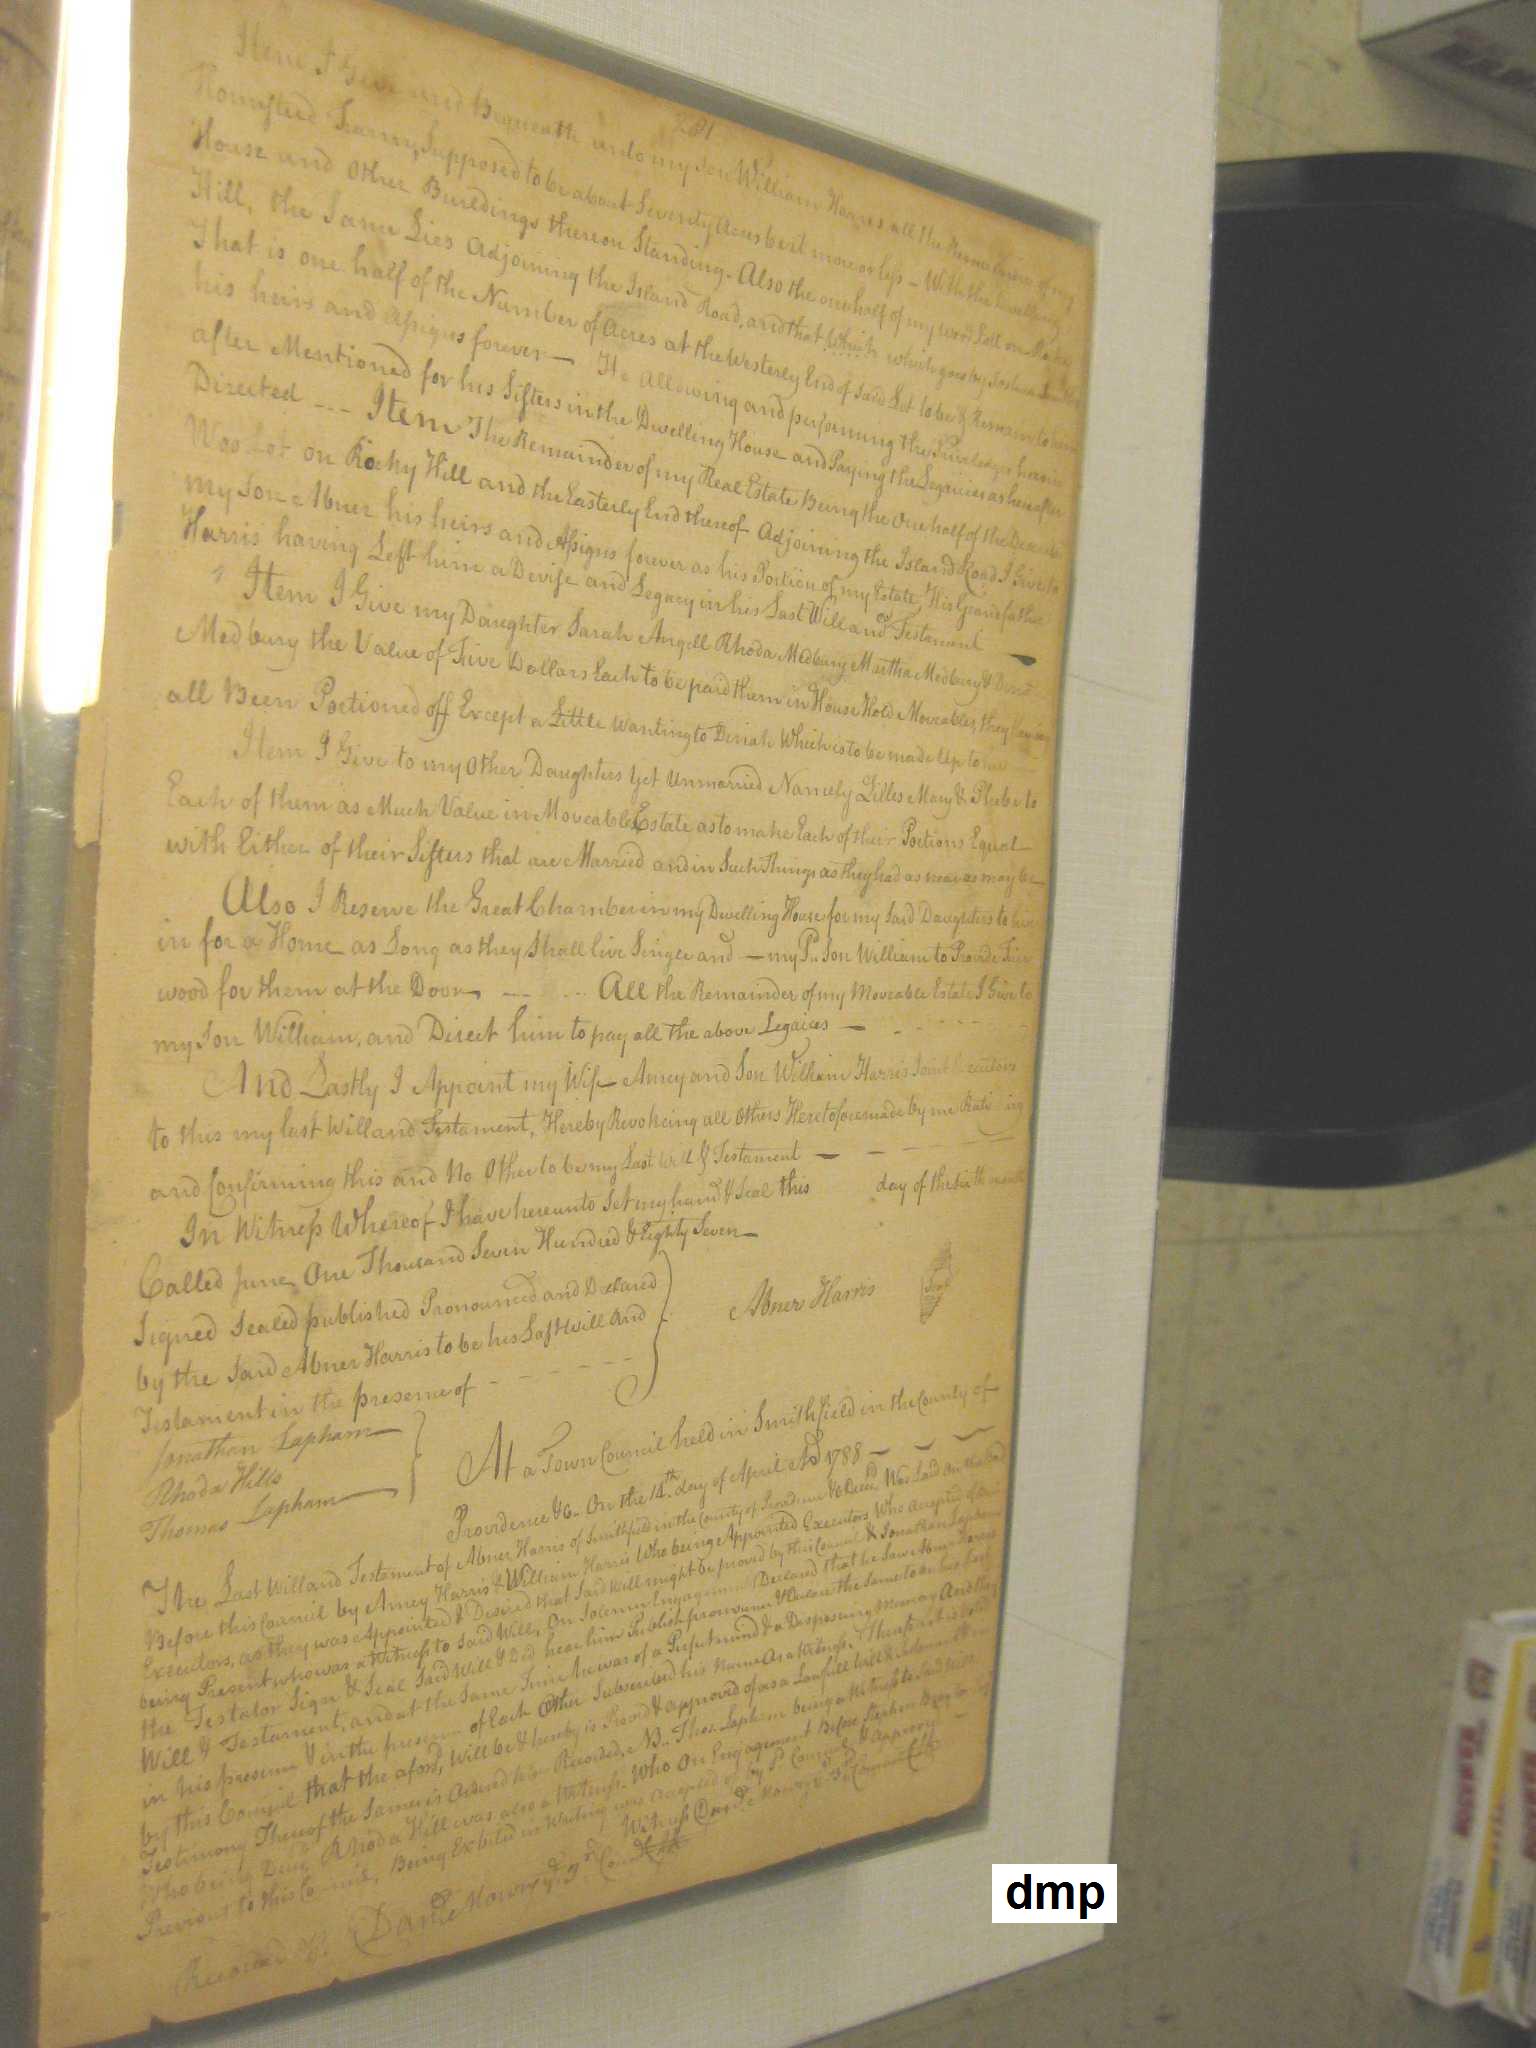 201
Item I Give and Bequeath unto my Son William Harris all the Remainder of my
Homested Farm, Supposed to be about Seventy Acres be it more or less - With the Dwelling
House and Other Buildings thereon Standing - Also the one half of my wood Lott on Rocky
Hill, the Same Lies Adjoining the Island Road, and that which which goes by Joshua
That is one half of the Number of Acres at the Westerly End of said Lot to be & Remain to him
his heirs and Assigns forever — He allowing and performing the Priveledges herein
after Mentioned for his Sisters in the Dwelling House and Paying the Legacies as hereafter
Directed --- Item The Remainder of my Real Estate Being the One half of the
Woo Lot on Rocky Hill and the Easterly End thereof Adjoining the Island Road I Give to
my Son Abner his heirs and Assigns forever as his Portion of my Estate, His Grandfather
Harris having Left him a Devise and Legacy in his Last Will and Testament —
Item I Give my Daughter Sarah Angell Rhoda Medbury Martha Medbury &
Medbury the Value of Five Dollars Each to be paid them in House Hold Moveables, they
all Been Portioned off Except a Little wanting to Dinah Which is to be made Up to her
Item I Give to my Other Daughters Yet Unmarried Namely Lilles Mary & Phebe to
Each of them as Much Value in Moveable Estate as to make Each of their Portions Equal
with Either of their Sisters that are Married and in Such Things as they had as near as may be
Also I Reserve the Great Chamber in my Dwelling House for my Said Daughters to live
in for a Home as Long as they Shall live Single and — my Sd Son William to Provide Fire
wood for them at the Door --- All the Remainder of my Moveable Estate I Give to
my Son William, and Direct him to pay all the above Legaices —
And Lastly I Appoint my Wife Amey and Son William Harris Joint Executors
to this my last Will and Testament, Hereby Revokeing all Others Heretofore made by me
and Confirming this and No Other to be my Last Will & Testament —
In Witness Whereof I have hereunto Set my hand & Seal this day of the Sixth month
Called June, One Thousand Seven Hundred & Eighty Seven
Signed Sealed published Pronounced and Declared
by the Said Abner Harris to be his Last Will and
Testament in the presence of
Abner Harris
Jonathan Lapham
Rhoda Hills
Thomas Lapham
At a Town Council held in Smithfield in the County of
Providence &c. On the 14th day of April AD 1788
The Last Will and Testament of Abner Harris of Smithfield in the County of Providence &c Decd Was Laid
Before this Council by Amey Harris & William Harris Who being Appointed Executors Who Accepted of
Executors, as they was Appointed & Desired that Said Will might be proved by this Council & Jonathan Lapham
being Present who was a Witness to Said Will, On Solemn Engagement Declared that he Saw Abner Harris
the Testator Sign & Seal Said Will & Did hear him Publish pronounce & Declare the Same to be his Last
Will & Testament, and at the Same Time he was of a Perfect mind & a Disposeing Memory And they
in his presence & in the presence of Each Other Subscribed his Name As a Witness. Therefore
by this Council that the aforsd Will be & hereby is Proved & approved of as a Lawfull Will &
Testimony Thereof the Same is Ordered to be Recorded. NB. Thos Lapham being a Witness to Said Will
Who being Decd, Rhoda Hill was also a Witness Who On Engagement Before Stephen
Previous to this Council, Being Exhibited in Writing was accepted of by sd Council & Approved
Witness Daniel Mowry
Recorded By Daniel Mowry
dmp